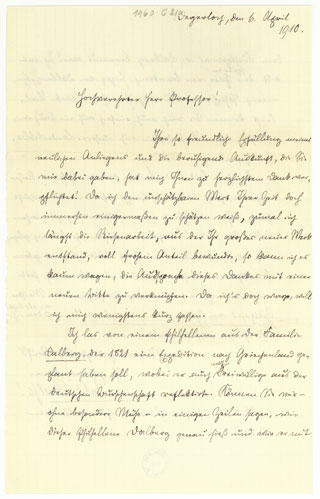 1960 C 210
Degerloch, den 6. April
1910.
Hochverehrter Herr Professor!
Ihre so freundliche Erfüllung meines
neulichen Anliegens und die Auskunft, die Sie
mir dabei gaben, hat mich Ihnen zu herzlichstem Dank ver-
pflichtet. Da ich den unschätzbaren Wert Ihrer Zeit doch
immerhin einigermaßen zu schätzen weiß, zumal ich
längst die Riesenarbeit, aus der Ihr großes neues Werk
entstand, voll frohem Anteil bewundre, so kann ich es
kaum wagen, die Aussprache dieses Dankes mit einer
neuen Bitte zu verknüpfen. Da ich's doch wage, will
ich mich wenigstens kurz fassen.
Ich las von einem Philhellenen aus der Familie
Dalberg, der 1821 eine Expedition nach Griechenland ge-
plant haben soll, wobei er auch Freiwillige aus der
deutschen Burschenschaft reflektirte. Können Sie mir
ohne besondere Mühe in einigen Zeilen sagen, wie
dieser Philhellene Dalberg genau hieß und wie er mit